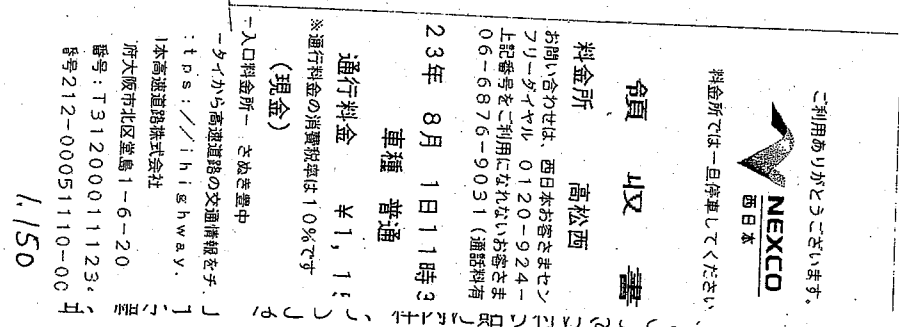 ご利用ありがとうございます。
NEXCO
西日本
料金所では一旦停車してください
領収書
料金所 高松西
お問い合わせは、西日本お客さまセン
フリーダイヤル 0120-924-
上記番号をご利用になれないお客さま
06-6876-9031(通話料有
23年 8月 1日11時3
車種 普通
通行料金 ¥1,15
※通行料金の消費税率は10%です
(現金)
-入口料金所- さぬき豊中
-タイから高速道路の交通情報をチ
:tps://ihighway.
1本高速道路株式会社
府大阪市北区堂島1-6-20
番号:T312000111123
番号212-00051110-00
1,150